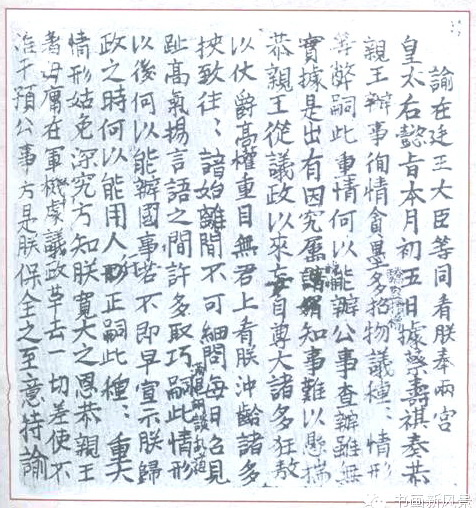 諭在廷王大臣等同看朕奉兩宮
皇太后懿旨本月初五日據蔡壽祺奏恭
親王辦事徇情貪墨驕盈攬權多招物議種〻情形
等弊嗣此重情何以能辦公事查辦雖無
實據是出有因究屬曖昧知事難以懸揣
恭親王從議政以來妄自尊大諸多狂敖
以仗爵高權重目無君上看朕沖齡諸多
挾致往〻諳始離間不可細問每日召見
趾高氣揚言語之間許多取巧滿是胡談亂道嗣此情形
以後何以能辦國事若不即早宣示朕歸
政之時何以能用人行正嗣此種〻重大
情形姑免深究方知朕寬大之恩恭親王
著毋庸在軍機處議政革去一切差使不
准干預公事方是朕保全之至意特諭
书画新风景